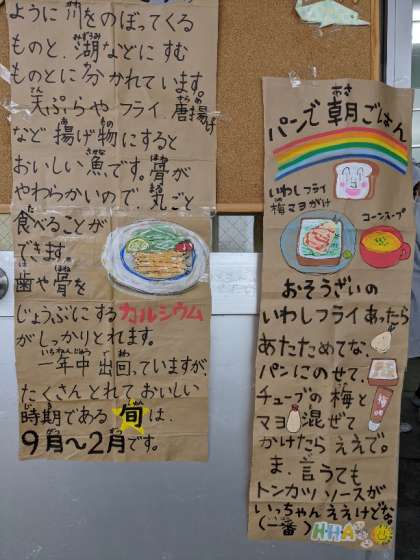 ように川をのぼってくる
ものと、湖などにすむ
ものとに分かれています。
天ぷらやフライ、唐揚げ
など揚げ物にすると
おいしい魚です。骨が
やわらかいので、丸ごと
食べることが
できます。
歯や骨を
じょうぶにするカルシウム
がしっかりとれます。
一年中出回っていますが、
たくさんとれておいしい
時期である旬は、
9月〜2月です。
パンで朝ごはん
いわしフライ
梅マヨがけ
コーンスープ
おそうざいの
いわしフライあったら
あたためてな、
パンにのせて、
チューブの梅と
マヨ混ぜて
かけたらええで。
ま、言うても
トンカツソースが
いっちゃんええけどな。
(一番)
HHA